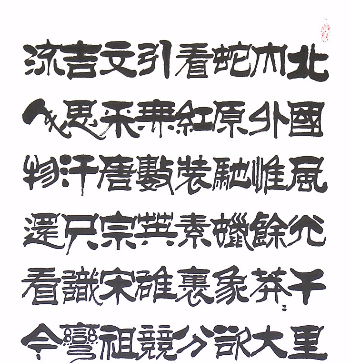 北國風光千里
内外惟餘莽〻大
蛇原馳蠟象欲
看紅裝素裹分
引無數英雄競
文采唐宗宋祖
吉思汗只識彎
流人物還看今